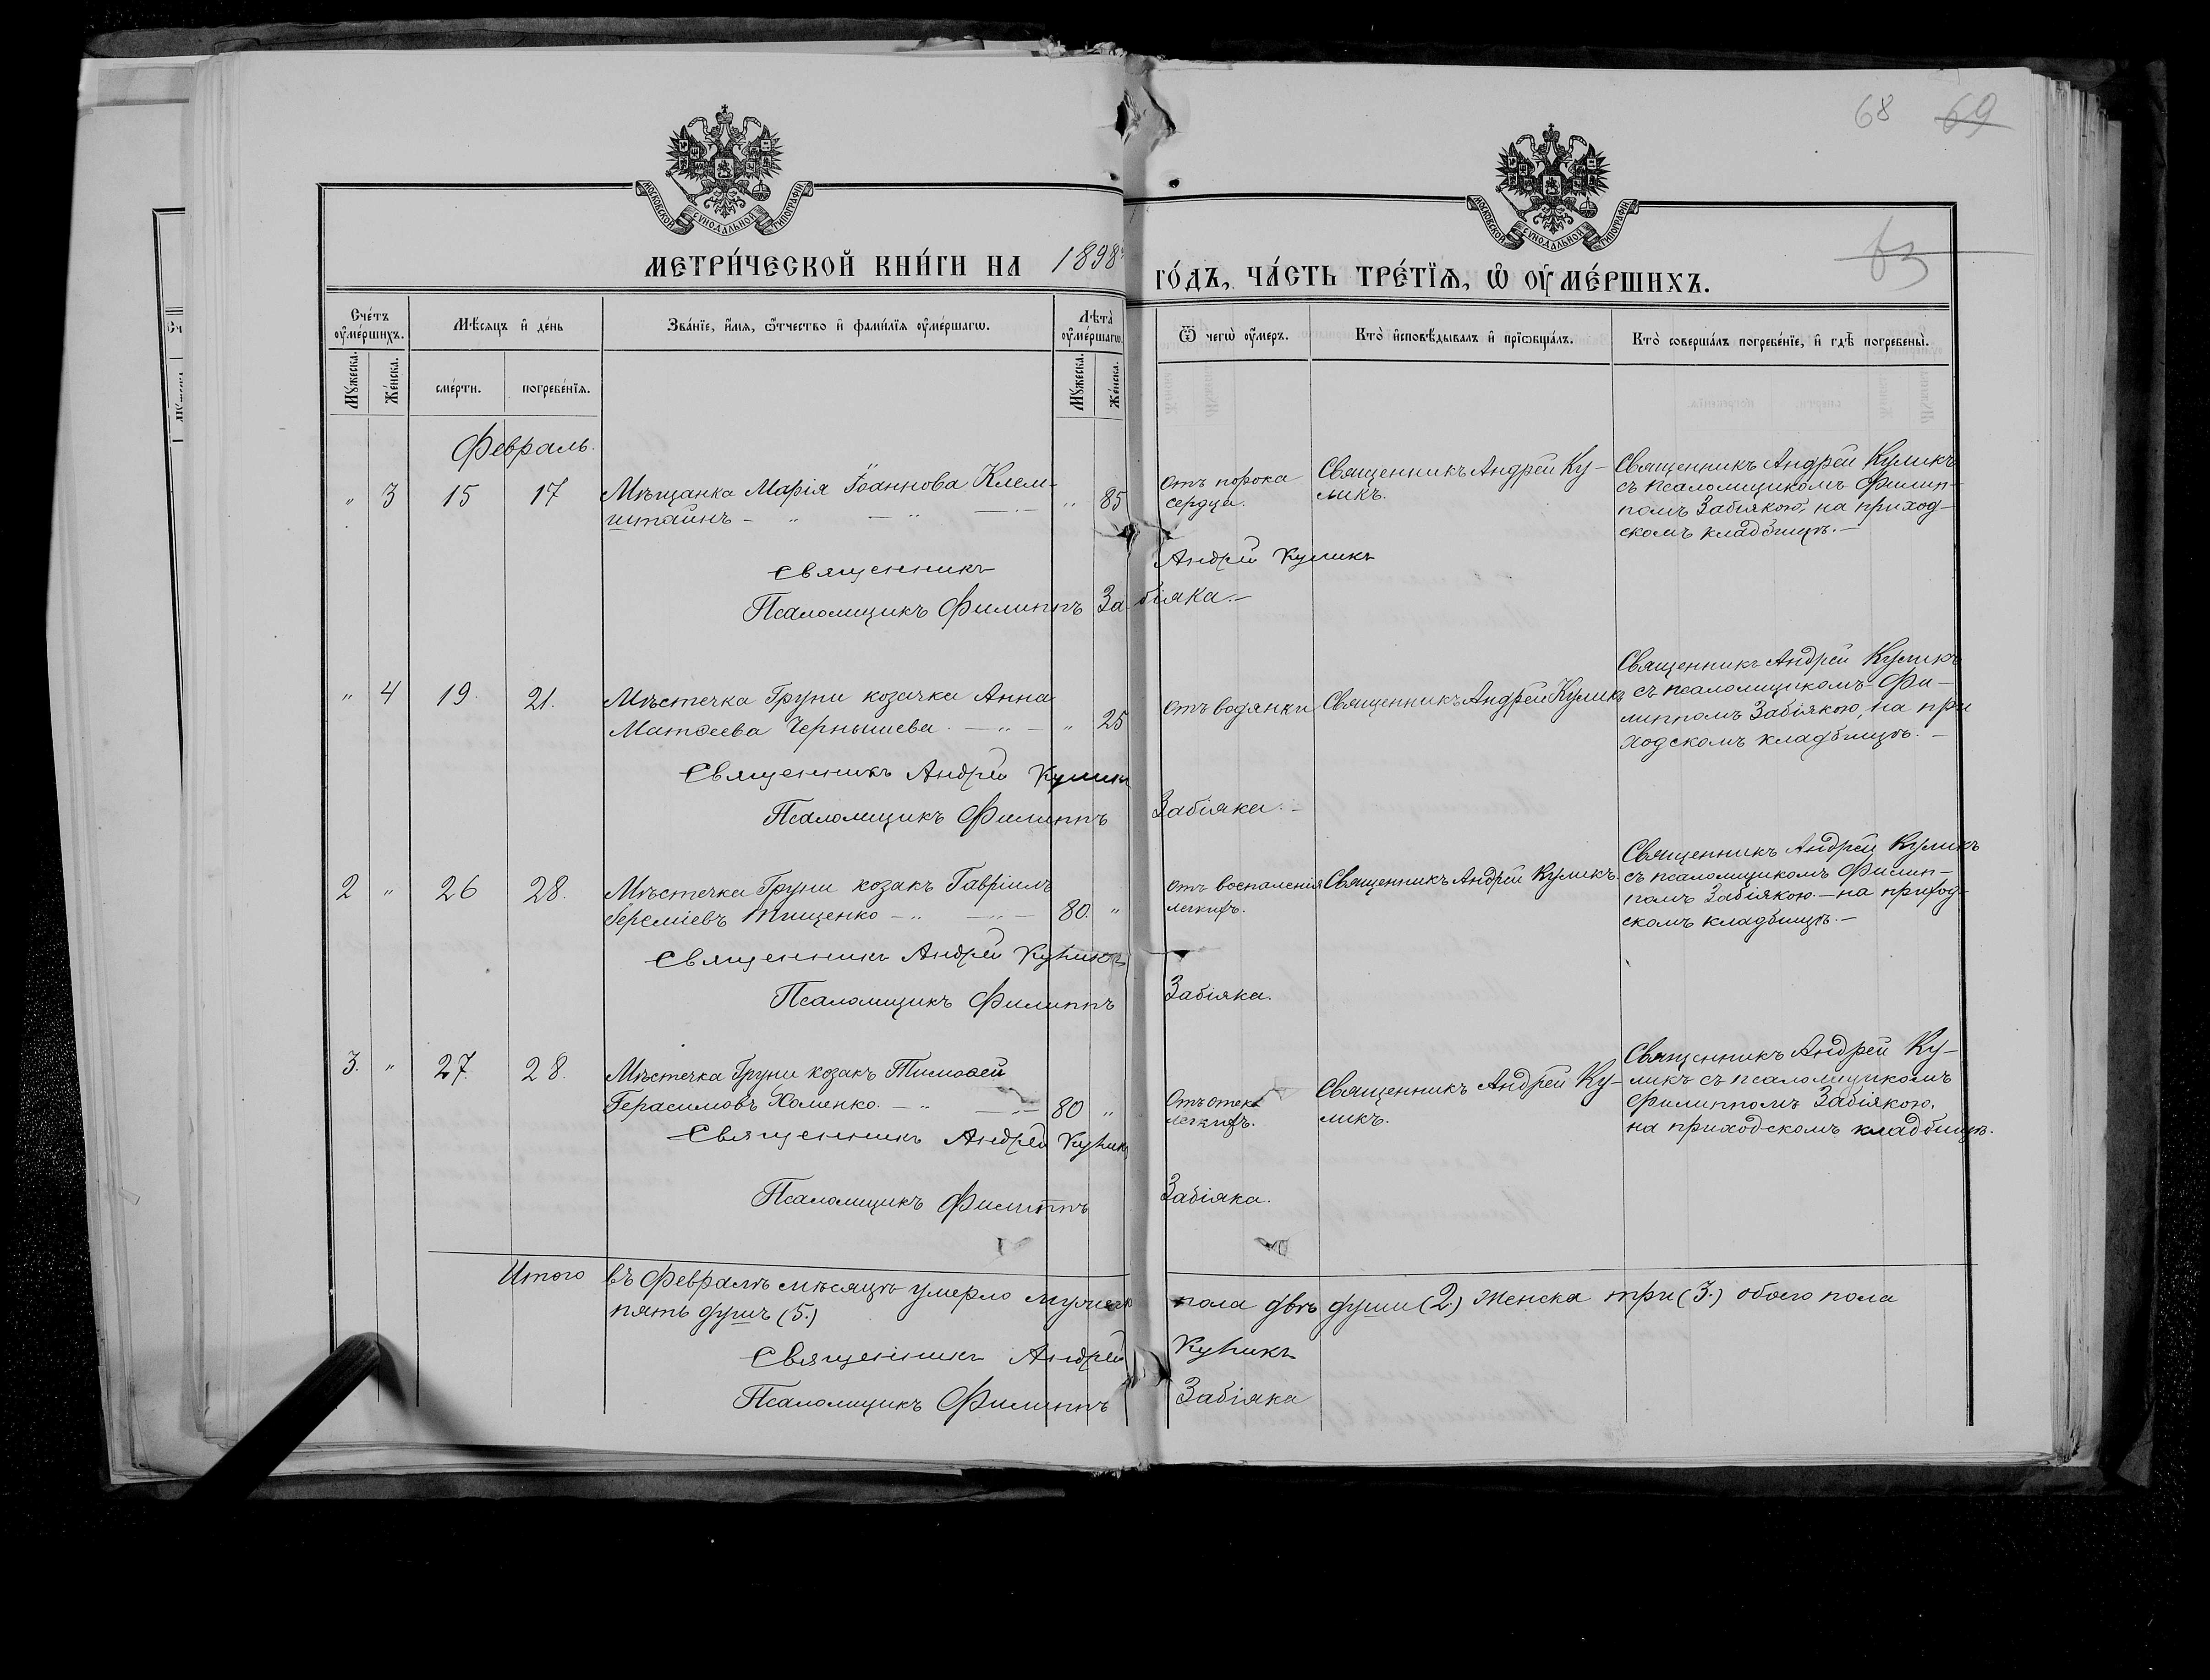 68 69
63
МОСКОВСКОЙ СѴНОДАЛЬНОЙ ТИПОГРАФІИ
МОСКОВСКОЙ СѴНОДАЛЬНОЙ ТИПОГРАФІИ
МЕТРИ́ЧЕСКОЙ КНИ́ГИ НА 1898 ГО́ДЪ, ЧА́СТЬ ТРЕ́ТЇѦ, Ѡ҆ ОУ҆МЕ́РШИХЪ.
Сче́тъ оу҆ме́ршихъ.
Мѣ́сѧцъ и҆ де́нь
Зва́нїе, и҆́мѧ, ѻ҆́тчество и҆ фами́лїѧ оу҆ме́ршагѡ.
Лѣ́та оу҆ме́ршагѡ.
Ѿ чегѡ̀ оу҆́меръ.
Кто̀ и҆сповѣ́дывалъ и҆ прїѡбща́лъ.
Кто̀ соверша́лъ погребе́нїе, и҆ гдѣ̀ погребены̀.
Мꙋ́жеска.
Же́нска.
сме́рти.
погребе́нїѧ.
Мꙋ́жеска.
Же́нска.
Февраль.
„ 3 15 17 Мѣщанка Марія Іоаннова Клем-
штайнъ – „ – „ – „ 85
Отъ порока
сердца.
Священникъ Андрей Ку-
ликъ.
Священникъ Андрей Куликъ
съ псаломщикомъ Филип-
помъ Забіякою, на приход-
скомъ кладбищѣ.–
Священникъ Андрей Куликъ
Псаломщикъ Филиппъ Забіяка.–
„ 4 19. 21. Мѣстечка Груни козачка Анна
Матѳеева Чернышева. – „ – „ 25
Отъ водянки
Священникъ Андрей Куликъ
Священникъ Андрей Куликъ
съ псаломщикомъ Фи-
липпомъ Забіякою, на при
ходскомъ кладбищѣ.–
Священникъ Андрей Куликъ
Псаломщикъ Филиппъ Забіяка.–
2 „ 26 28. Мѣстечка Груни козакъ Гавріилъ
Іереміевъ Тищенко – „ – „ – 80. „
Отъ воспаленія
легкихъ.
Священникъ Андрей Куликъ.
Священникъ Андрей Куликъ
съ псаломщикомъ Филип-
помъ Забіякою – на приход-
скомъ кладбищѣ.–
Священникъ Андрей Куликъ
Псаломщикъ Филиппъ Забіяка.
3. „ 27. 28. Мѣстечка Груни козакъ Тимоѳей
Герасимовъ Хоменко. – „ – 80 „
Отъ отека
легкихъ.
Священникъ Андрей Ку-
ликъ.
Священникъ Андрей Ку-
ликъ съ псаломщикомъ
Филиппомъ Забіякою,
на приходскомъ кладбищѣ.
Священникъ Андрей Куликъ
Псаломщикъ Филиппъ Забіяка.
Итого въ Февралѣ мѣсяцѣ умерло мужеск пола двѣ души (2.) Женска три (3.) обоего пола
пять душъ (5.)
Священникъ Андрей Куликъ
Псаломщикъ Филиппъ Забіяка